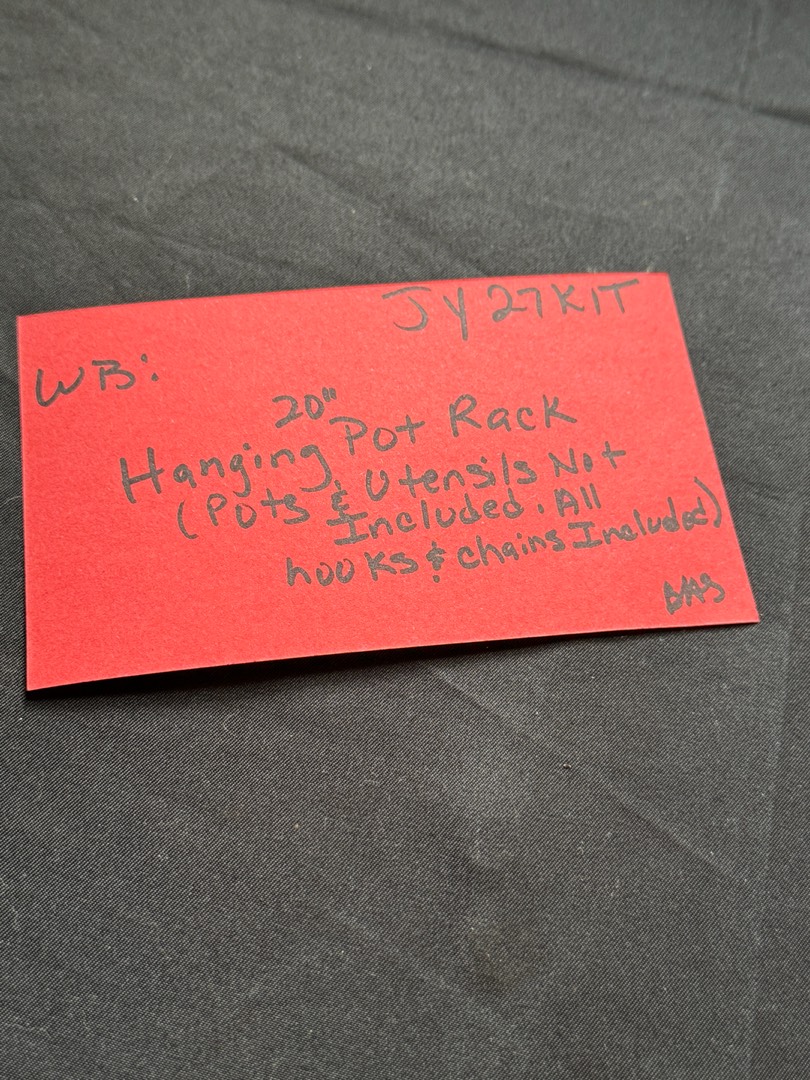 JY27KIT
WB:
20"
Hanging Pot Rack
(Pots & Utensils Not
Included. All
hooks & chains Included)